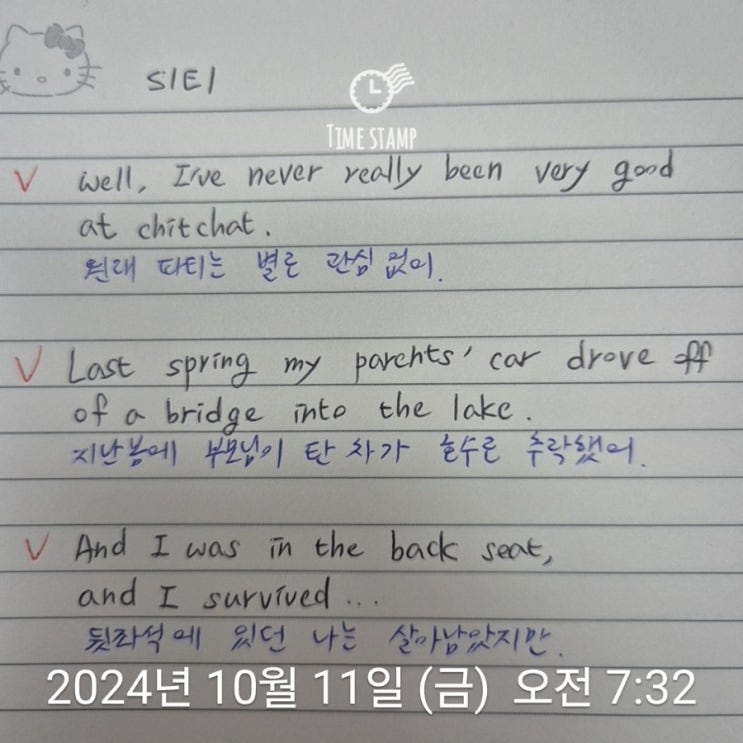 S1E1
TIME STAMP
V well, I've never really been very good
at chitchat.
원래 파티는 별로 관심 없어.
V Last spring my parents' car drove off
of a bridge into the lake.
지난봄에 부모님이 탄 차가 호수로 추락했어.
V And I was in the back seat,
and I survived...
뒷좌석에 있던 나는 살아남았지만.
2024년 10월 11일 (금) 오전 7:32